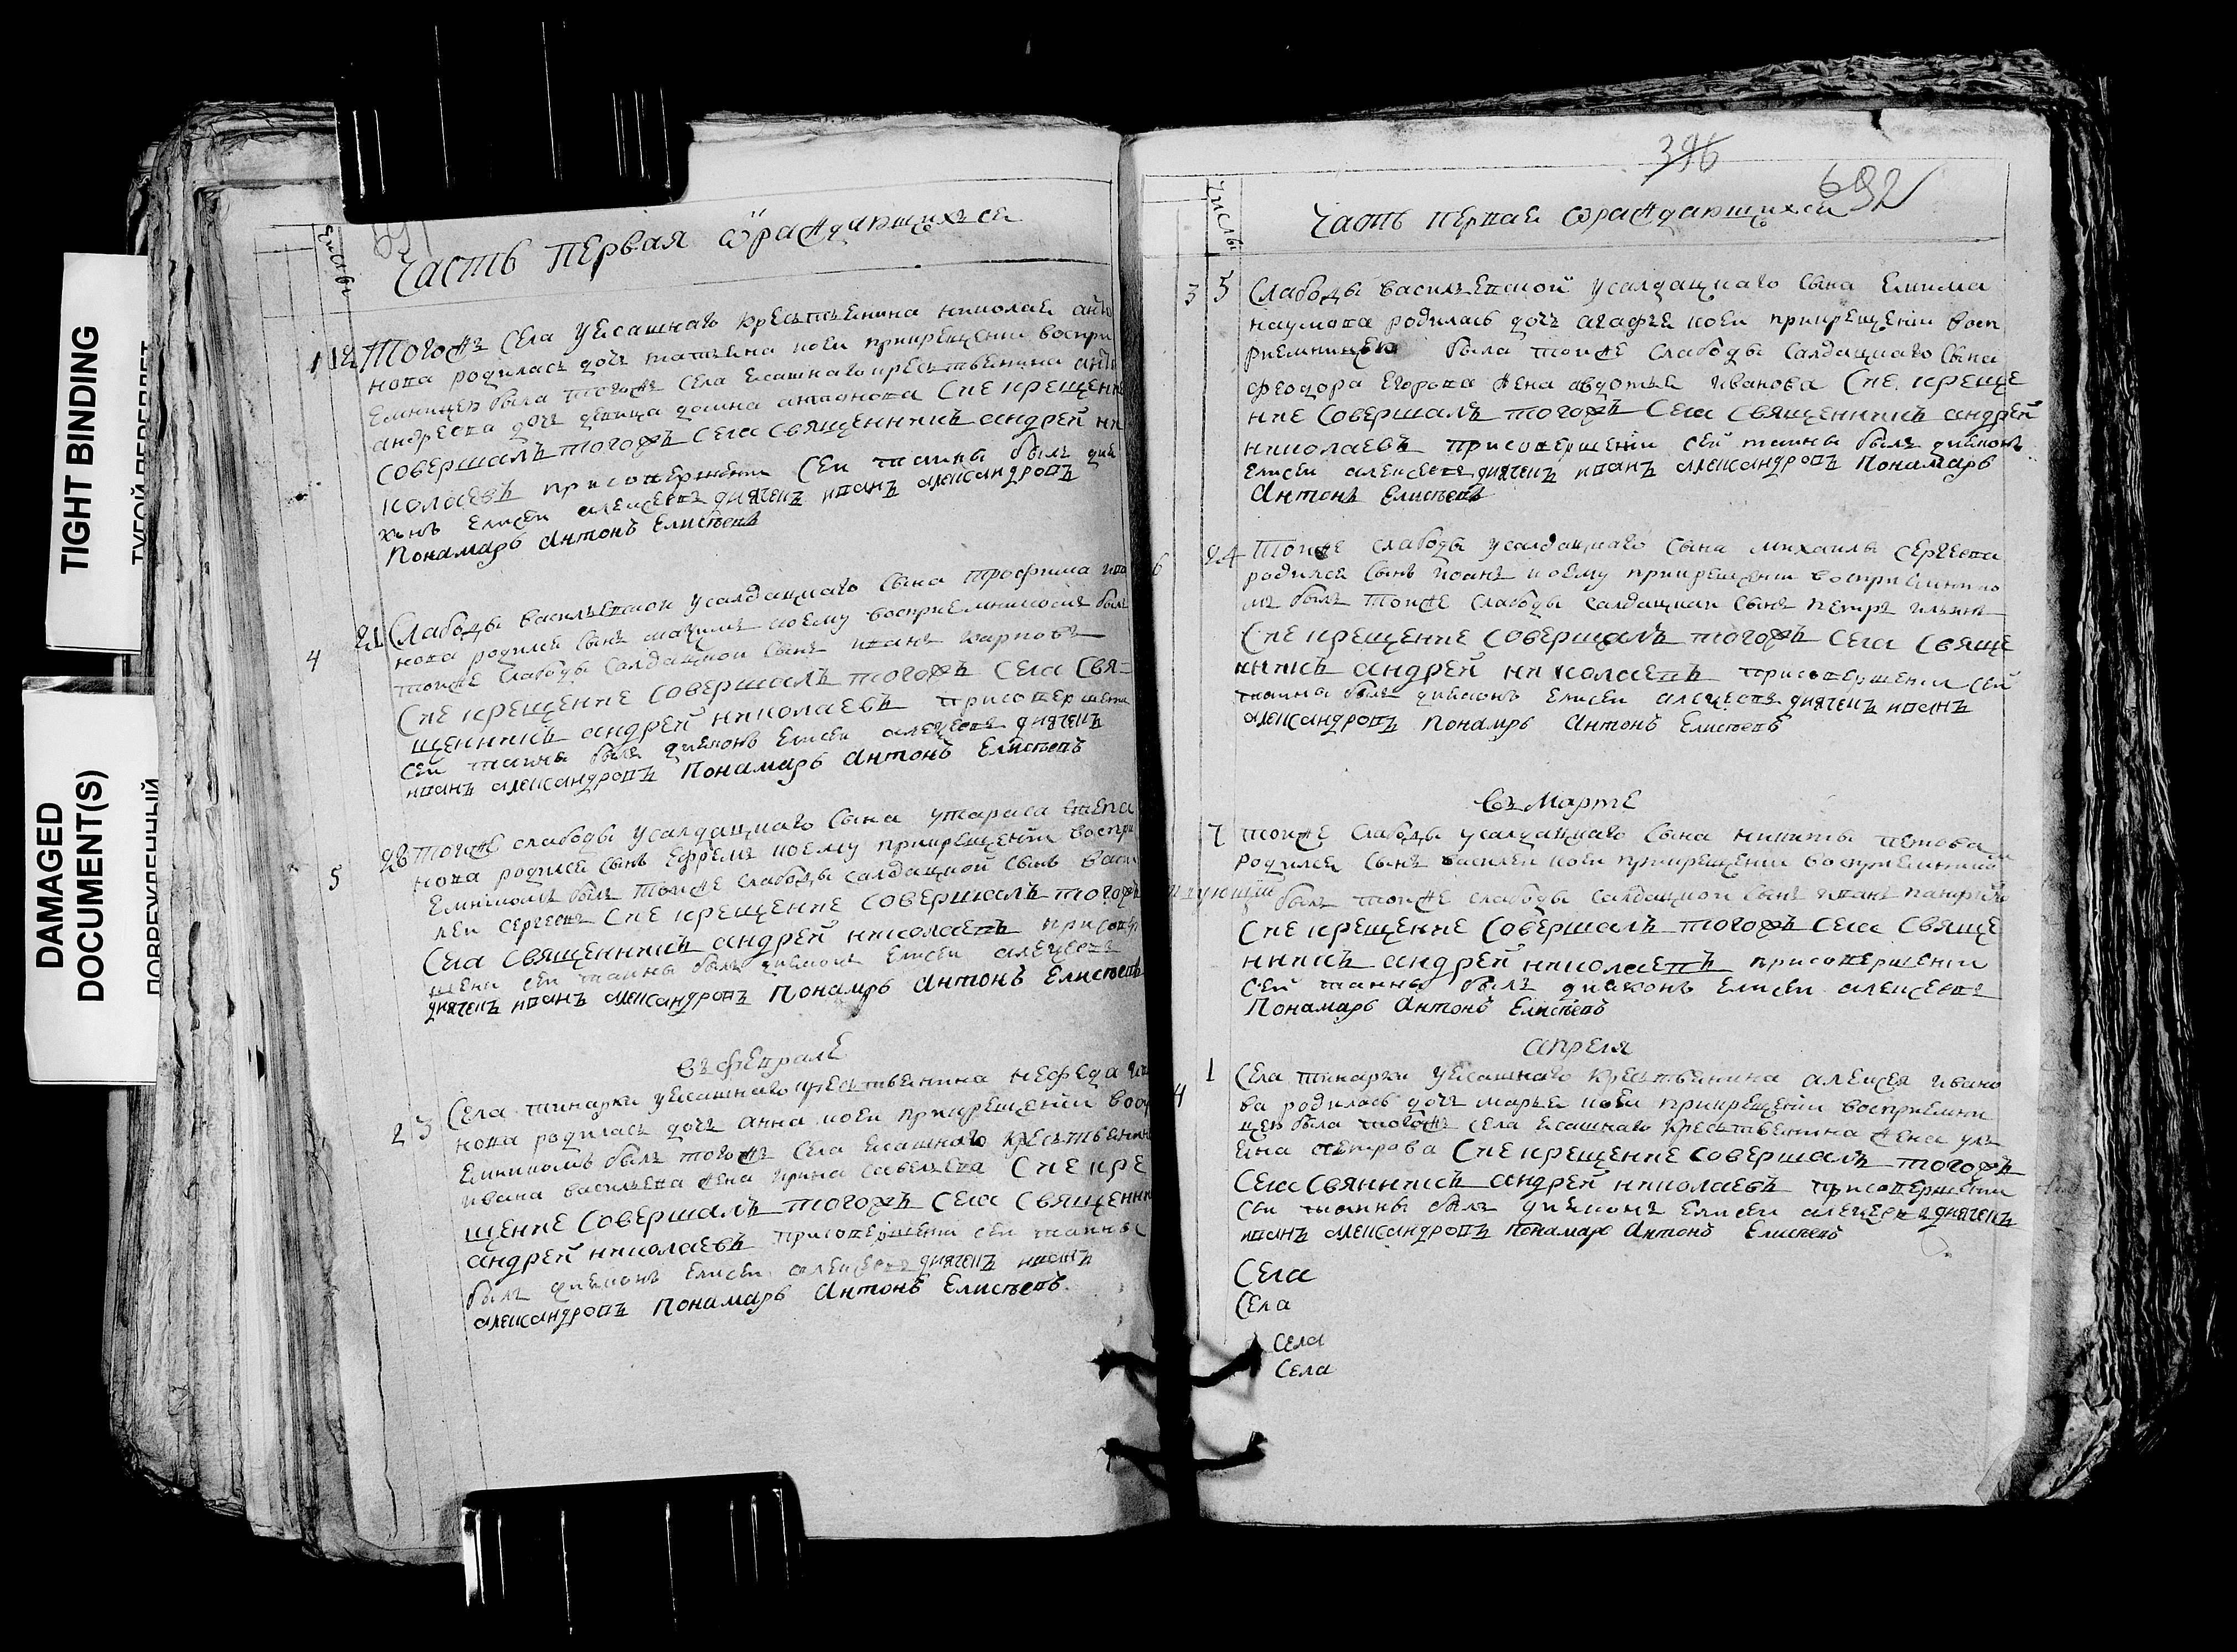 TIGHT BINDING
DAMAGED
DOCUMENT(S)
ПОВРЕЖДЕННЫЙ
числы
Часть первая ѿ раждающихся
1 12 Тогожъ села уясашнаго крестьянина николая анто
нова родилась дочь татьяна коеи прикрещении воспри
емницею была тогожъ села ясашнаго крестьянина
андреева дочь девица Сие крещение
совершалъ тогожъ села священникъ андреи ни
колаевъ присовершении сеи таины былъ дия
конъ елисеи алексеевъ диячекъ иванъ александровъ
Понамарь Антонъ Елисеевъ
4 21 Слабоды васильевской усалдацкаго сына трофима ива
нова родился сынъ максимъ коему восприемникомъ былъ
тоиже слабоды салдацкои сынъ иванъ карповъ
Сие крещение совершалъ тогожъ села свя-
щенникъ андрей николаевъ присовершени
сеи таины былъ дияконъ елисеи алексеевъ диячекъ
иванъ александровъ Понамарь Антонъ Елисеевъ
5 28 тоиже слабоды усалдацкаго сына утараса степа
нова родился сынъ ефремъ коему прикрещении воспри
емникомъ былъ тоиже слабоды салдацкой сынъ васи
леи сергеевъ Сие крещение совершалъ тогожъ
села священникъ андрей николаевъ присовер
шени сеи таины былъ дияконъ елисеи алексеевъ
диячекъ иванъ александровъ Понамарь Антонъ Елисеевъ
въ февралѣ
2 3 Села тинарки уясашнаго крестьянина нефеда ива
нова родилась дочь анна коеи прикрещении воспр
емникомъ былъ тогожъ села ясашнаго крестьянина
ивана васильева жена ирина савельева Сие кре
щение совершалъ тогожъ села священни
андрей николаевъ присовершени сеи таины
былъ дияконъ елисеи алексеевъ диячекъ иванъ
александровъ Понамарь Антонъ Елисеевъ.
396
692
числы
Часть первая ѿ раждающихся
3 5 Слабоды васильевской усалдацкаго сына екима
наумова родилась дочь агафья коеи прикрещении восп
риемницею была тоиже слабоды салдацкаго сына
феодора егорова жена авдотья иванова Сие креще
ние совершалъ тогожъ села священникъ андрей
николаевъ присовершении сей таины былъ дияконъ
елисеи алексеевъ диячекъ иванъ александровъ Понамарь
Антонъ Елисеевъ
6 24 Тоиже слабоды усалдацкаго сына михаилы сергеева
родился сынъ иоанъ коему прикрещении восприемнико
мъ былъ тоиже слабоды салдацкаи сынъ петръ ильинъ
Сие крещение совершалъ тогожъ села свяще
нникъ андрей николаевъ присовершении сей
таина былъ дияконъ елисеи алексеевъ диячекъ иванъ
александровъ Понамарь Антонъ Елисеевъ
въ Марте
7 тоиже слабоды усалдацкаго сына никиты
родился сынъ василеи коеи прикрещении восприемнико
былъ тоиже слабоды салдацкои сынъ иванъ панфило
Сие крещение совершалъ тогожъ села свяще
нникъ андрей николаевъ присовершении
сей таины былъ дияконъ елисеи алексеевъ
Понамарь Антонъ Елисеевъ
апреля
4 1 Села тинарки уясашнаго крестьянина алексея ивано
ва родилась дочь марья коеи прикрещении восприемни
цею была тогожъ села ясашнаго крестьянина жена уль
яна петрова Сие крещение совершалъ тогожъ
села свянникъ андрей николаевъ присовершении
сеи таины былъ дияконъ елисеи алексеевъ диячекъ
иванъ александровъ понамарь Антонъ Елисеевъ
Села
Села
Села
Села